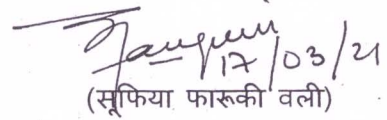 17/03/21
(सूफिया फारूकी वली)